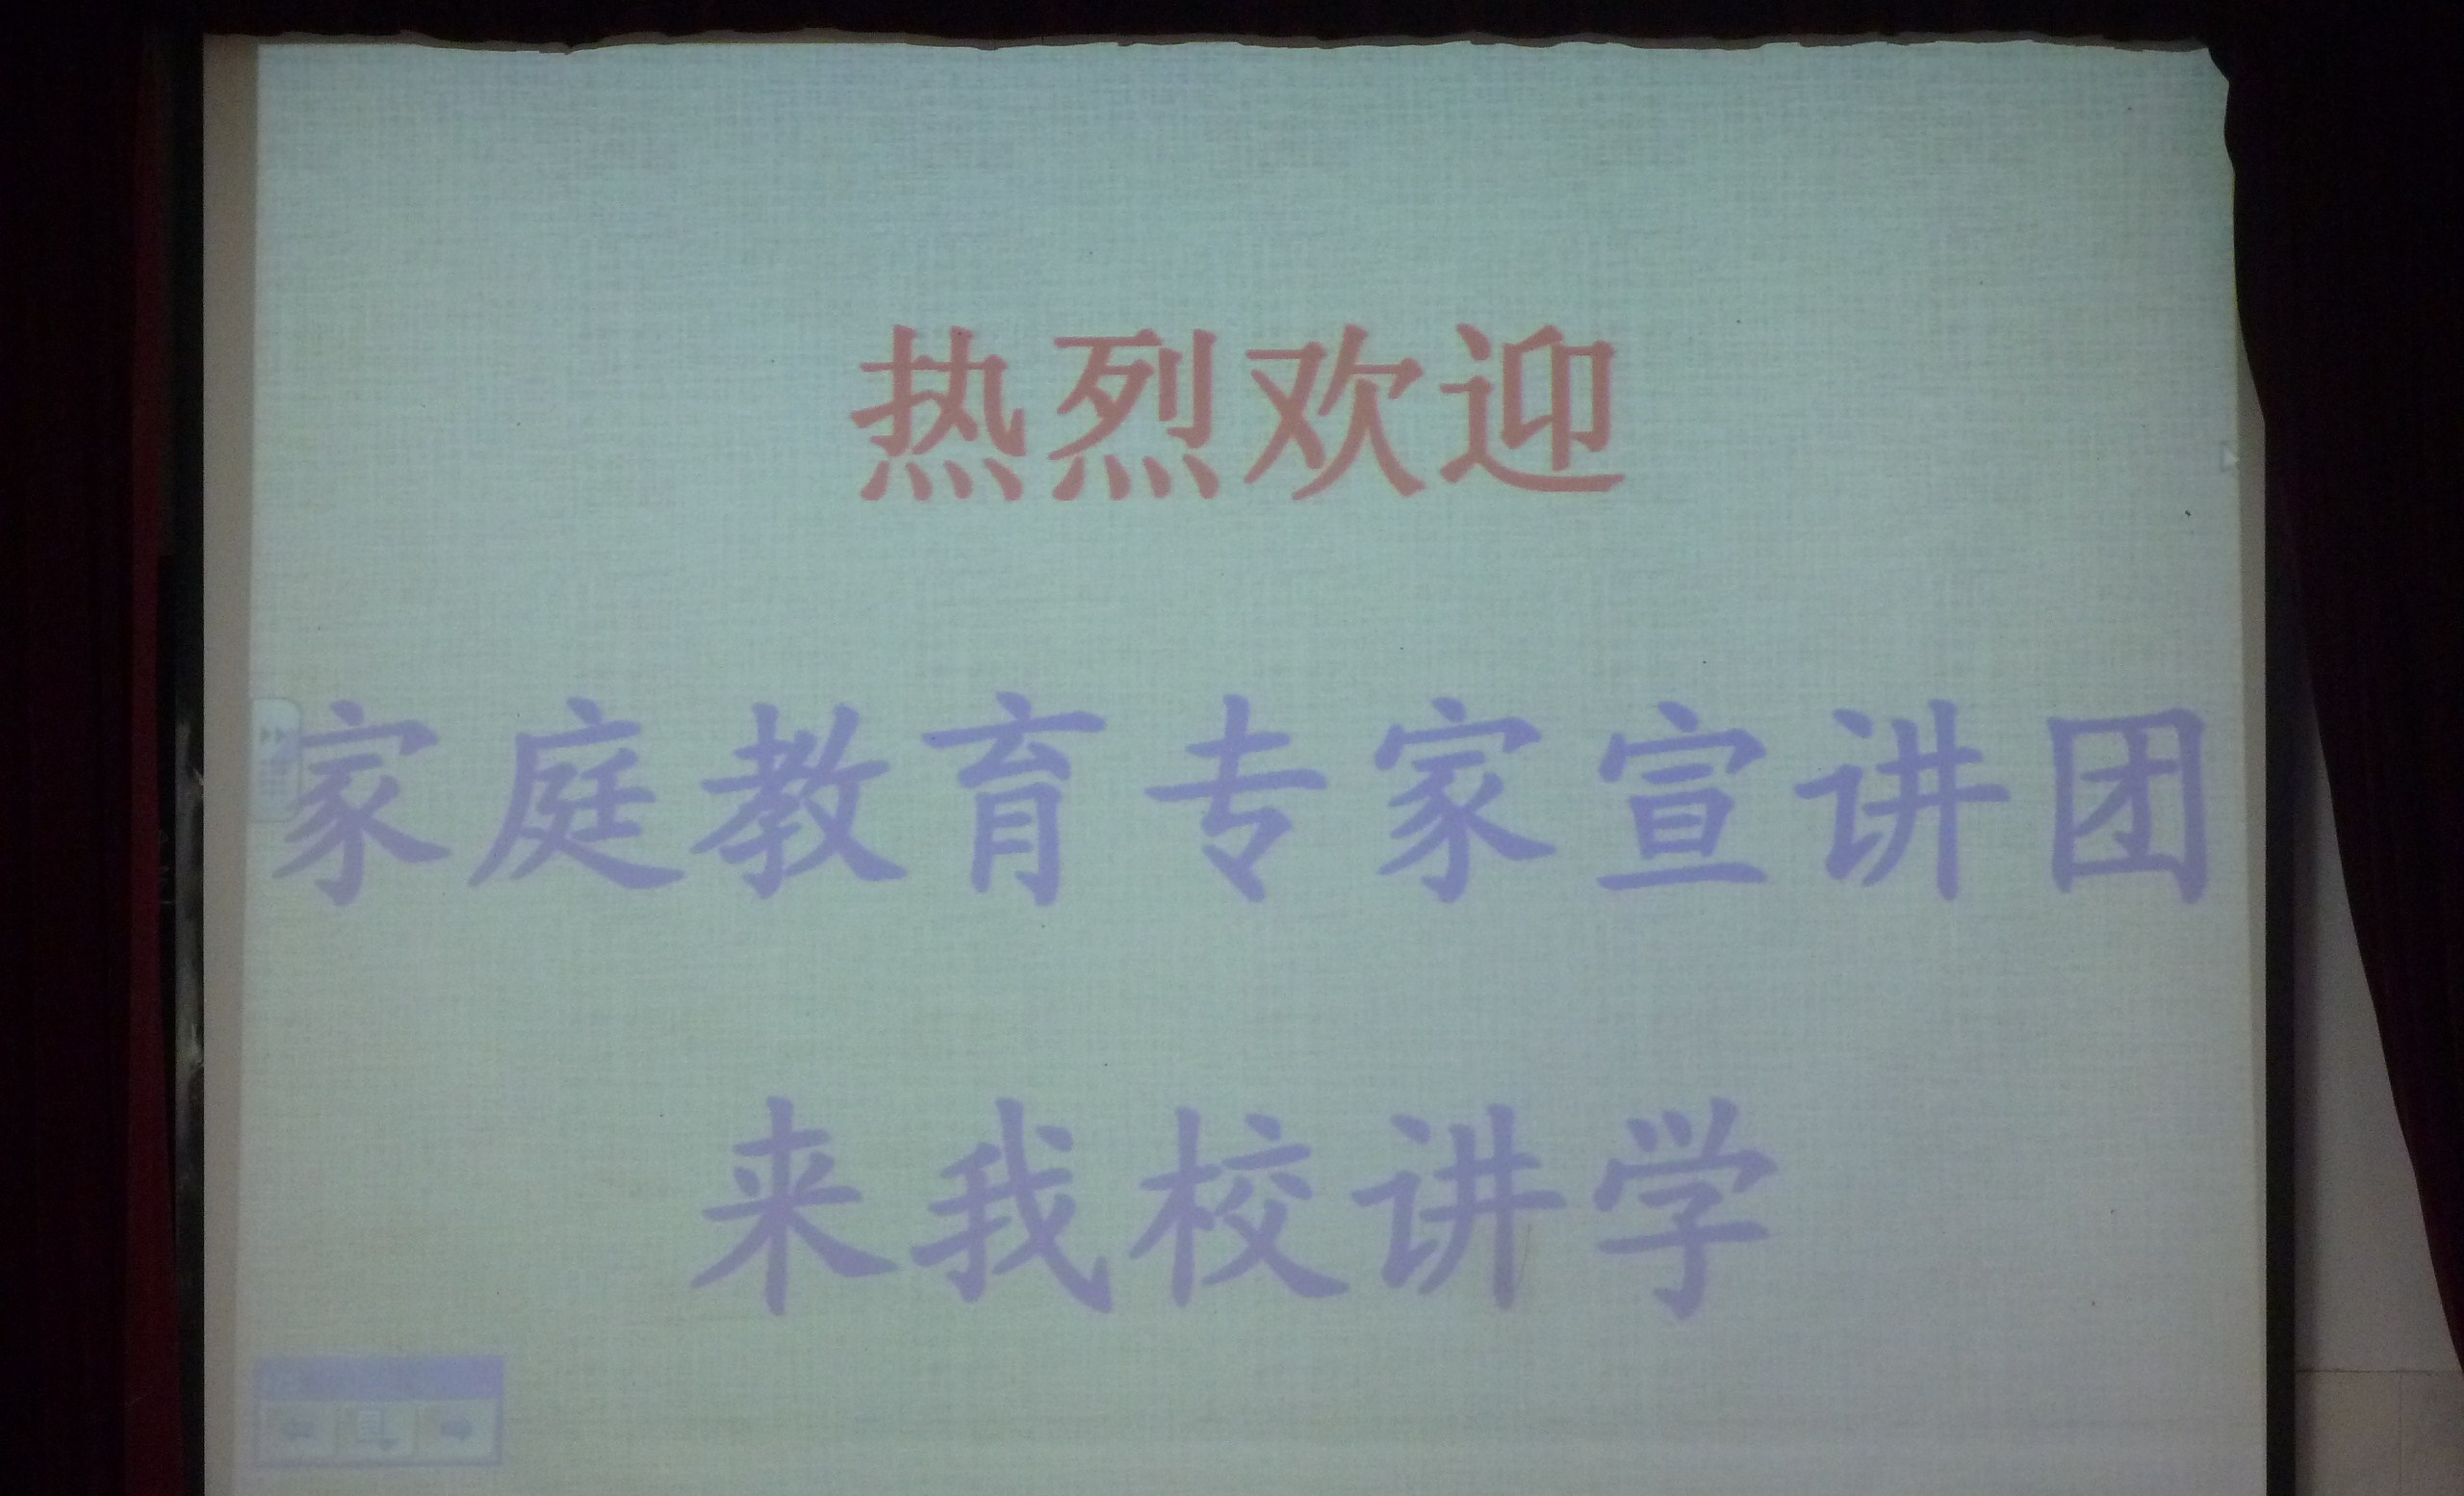 热烈欢迎
家庭教育专家宣讲团
来我校讲学